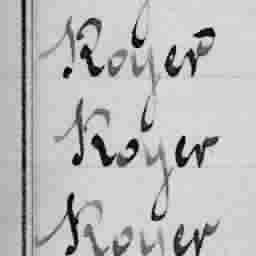 Royer
Royer
Royer